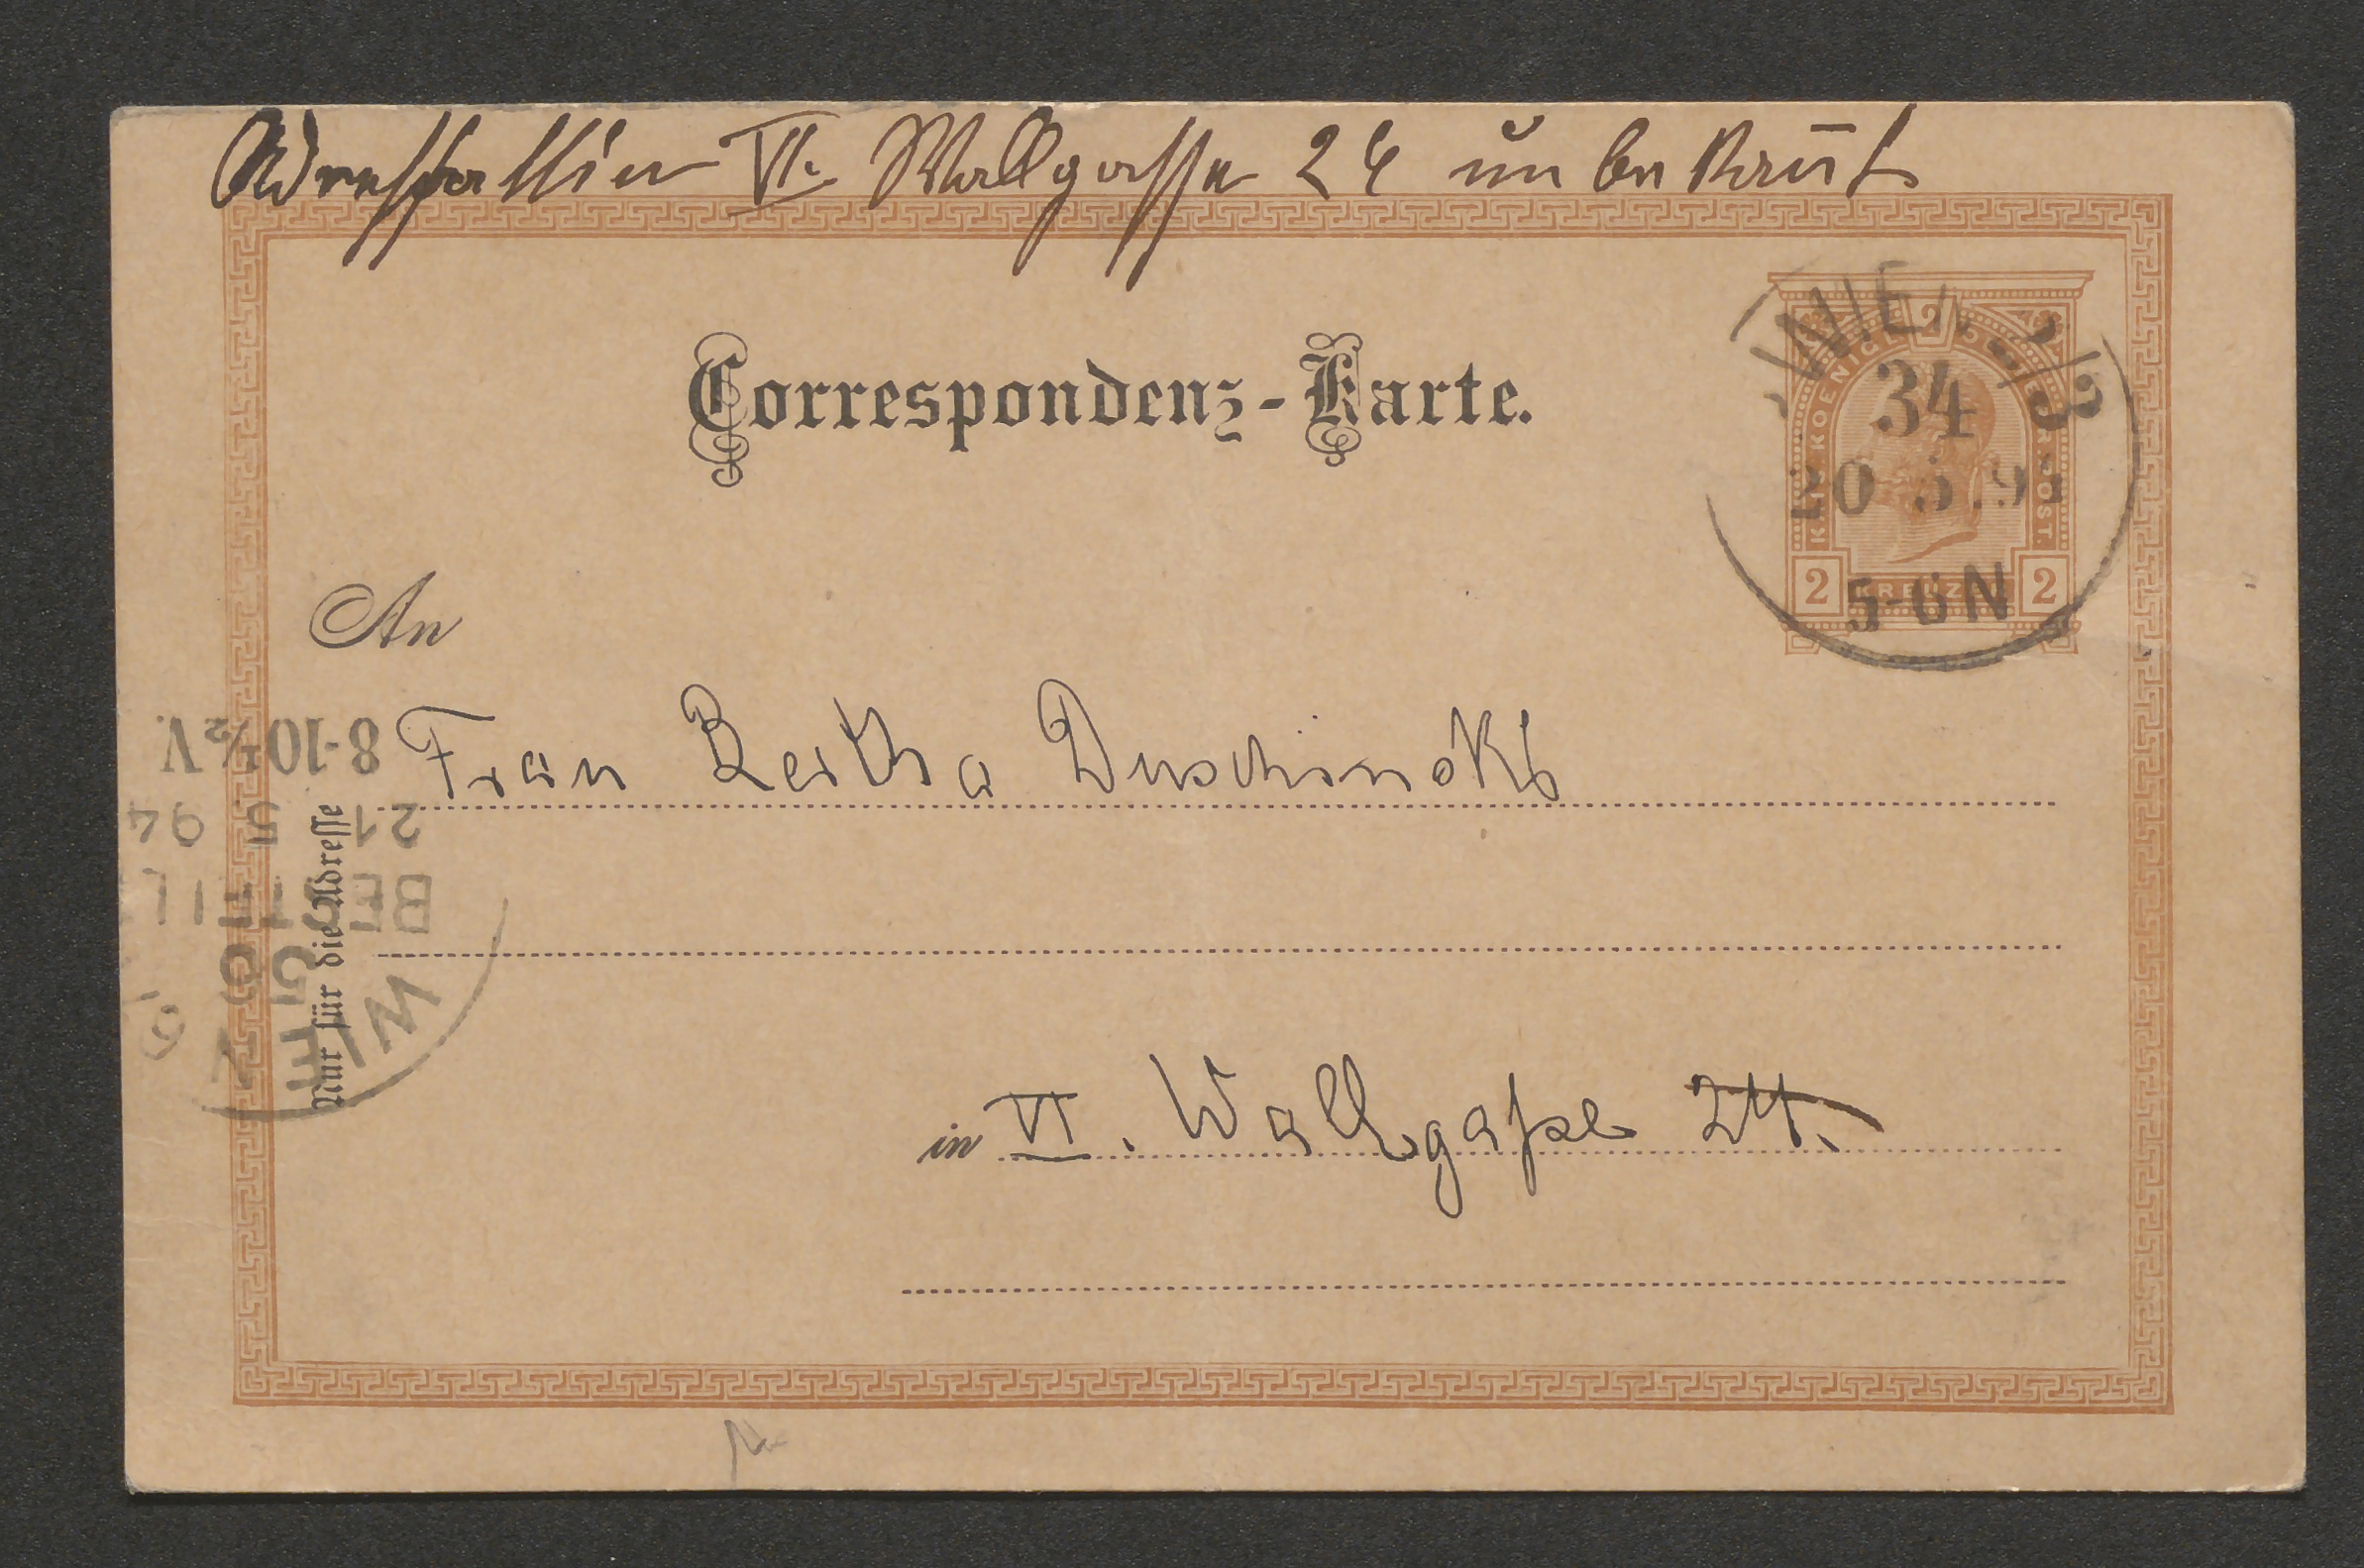 Adressattin VI. Wallgasse 24 unbekan̄t
Correspondenz-Karte.
WIEN 5/2
34
20 5.9
5-6N
2
KREUZER
2 2
An
Frau Bertha Duschinsky
in VI. Wallgasse 24.
Nur für die Adresse
WIEN
BESTELLT
21 5 94
8-10½V.